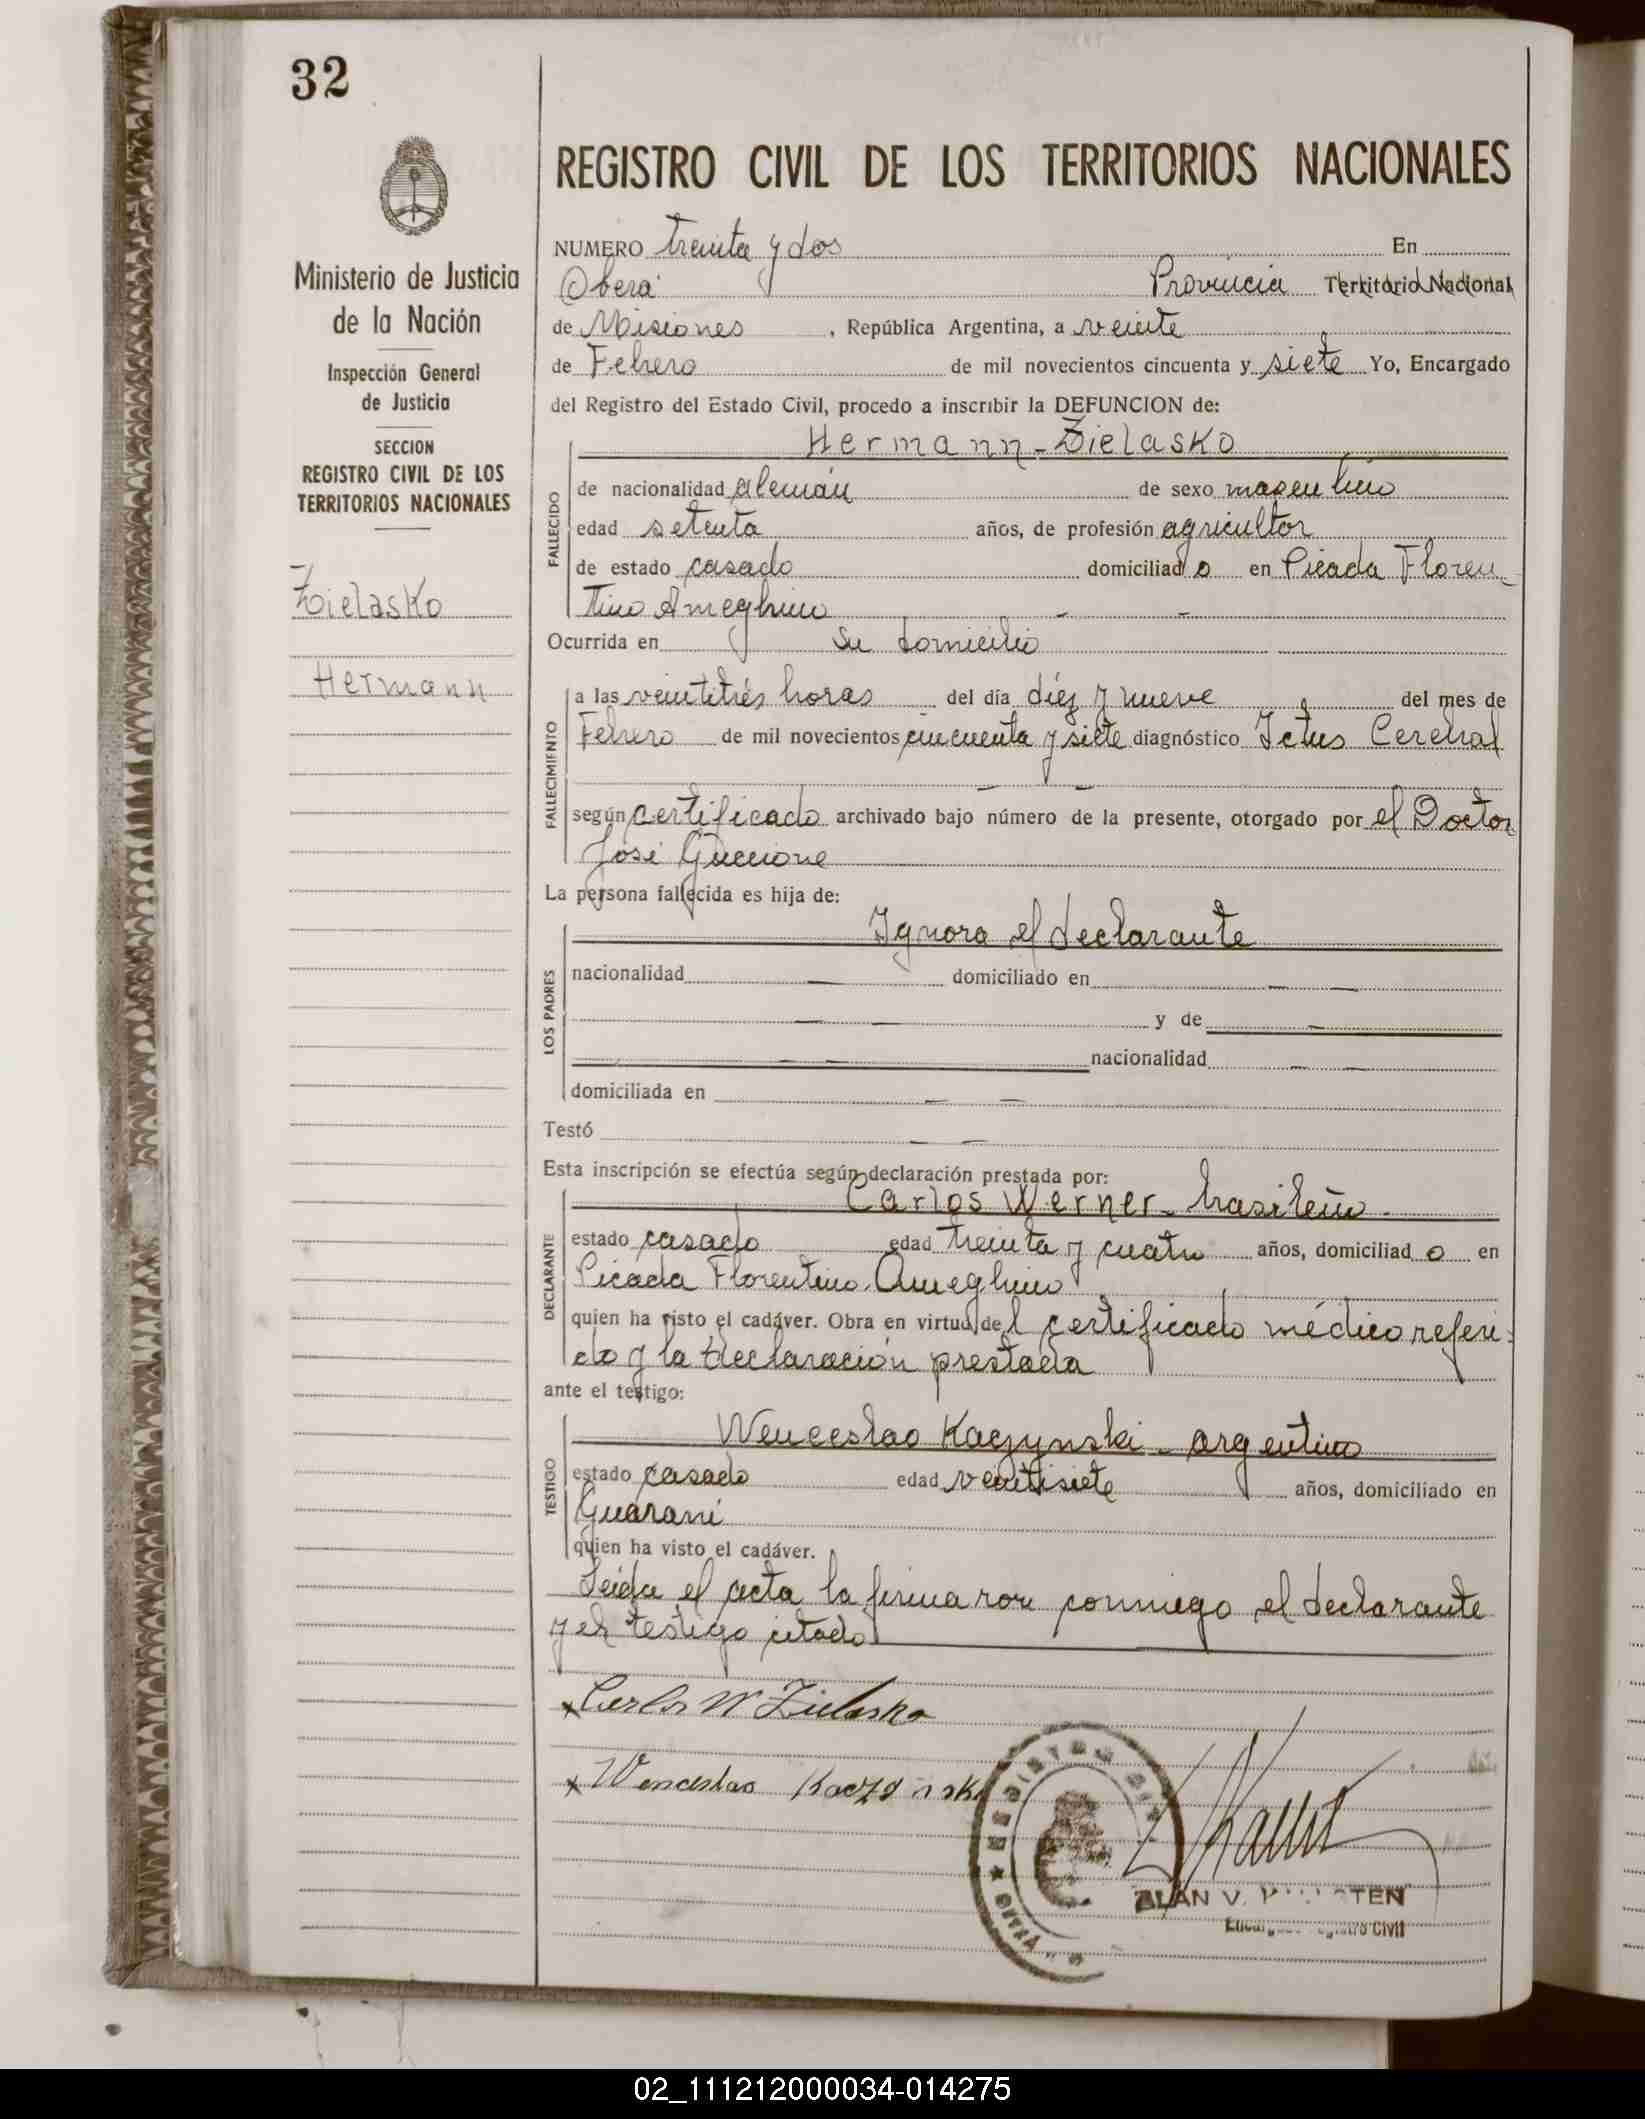 32
REGISTRO CIVIL DE LOS TERRITORIOS NACIONALES
Ministerio de Justicia
de la Nación
Inspección General
de Justicia
SECCION
REGISTRO CIVIL DE LOS
TERRITORIOS NACIONALES
Zielasko
Hermann
NUMERO treinta y dos En
Oberá Provincia Territorio Nacional
de Misiones, República Argentina, a veinte
de Febrero de mil novecientos cincuenta y siete Yo, Encargado
del Registro del Estado Civil, procedo a inscribir la DEFUNCION de:
Hermann - Zielasko
FALLECIDO
de nacionalidad alemán de sexo masculino
edad setenta años, de profesión agricultor
de estado casado domiciliado en Picada Floren-
tino Ameghino - -
Ocurrida en su domicilio
FALLECIMIENTO
a las veintitrés horas del día diéz y nueve del mes de
Febrero de mil novecientos cincuenta y siete diagnóstico Ictus Cerebral
— —
según certificado archivado bajo número de la presente, otorgado por el Doctor
José Guccione
La persona fallecida es hija de:
LOS PADRES
Ignora el declarante
nacionalidad — domiciliado en — —
— — y de —
— — nacionalidad — —
domiciliada en — —
Testó — —
Esta inscripción se efectúa según declaración prestada por:
DECLARANTE
Carlos Werner - brasileño -
estado casado edad treinta y cuatro años, domiciliado en
Picada Florentino Ameghino
quien ha visto el cadáver. Obra en virtud del certificado médico referi-
do y la declaración prestada
ante el testigo:
TESTIGO
Wenceslao Kaczynski - argentino
estado casado edad veintisiete años, domiciliado en
Guaraní
quien ha visto el cadáver.
Leída el acta la firmaron conmigo el declarante
y el testigo citado
x Carlos W Zielasko
x Wenceslao Kaczynski
REGISTRO CIVIL
ALAN V.
Civil
02_111212000034-014275